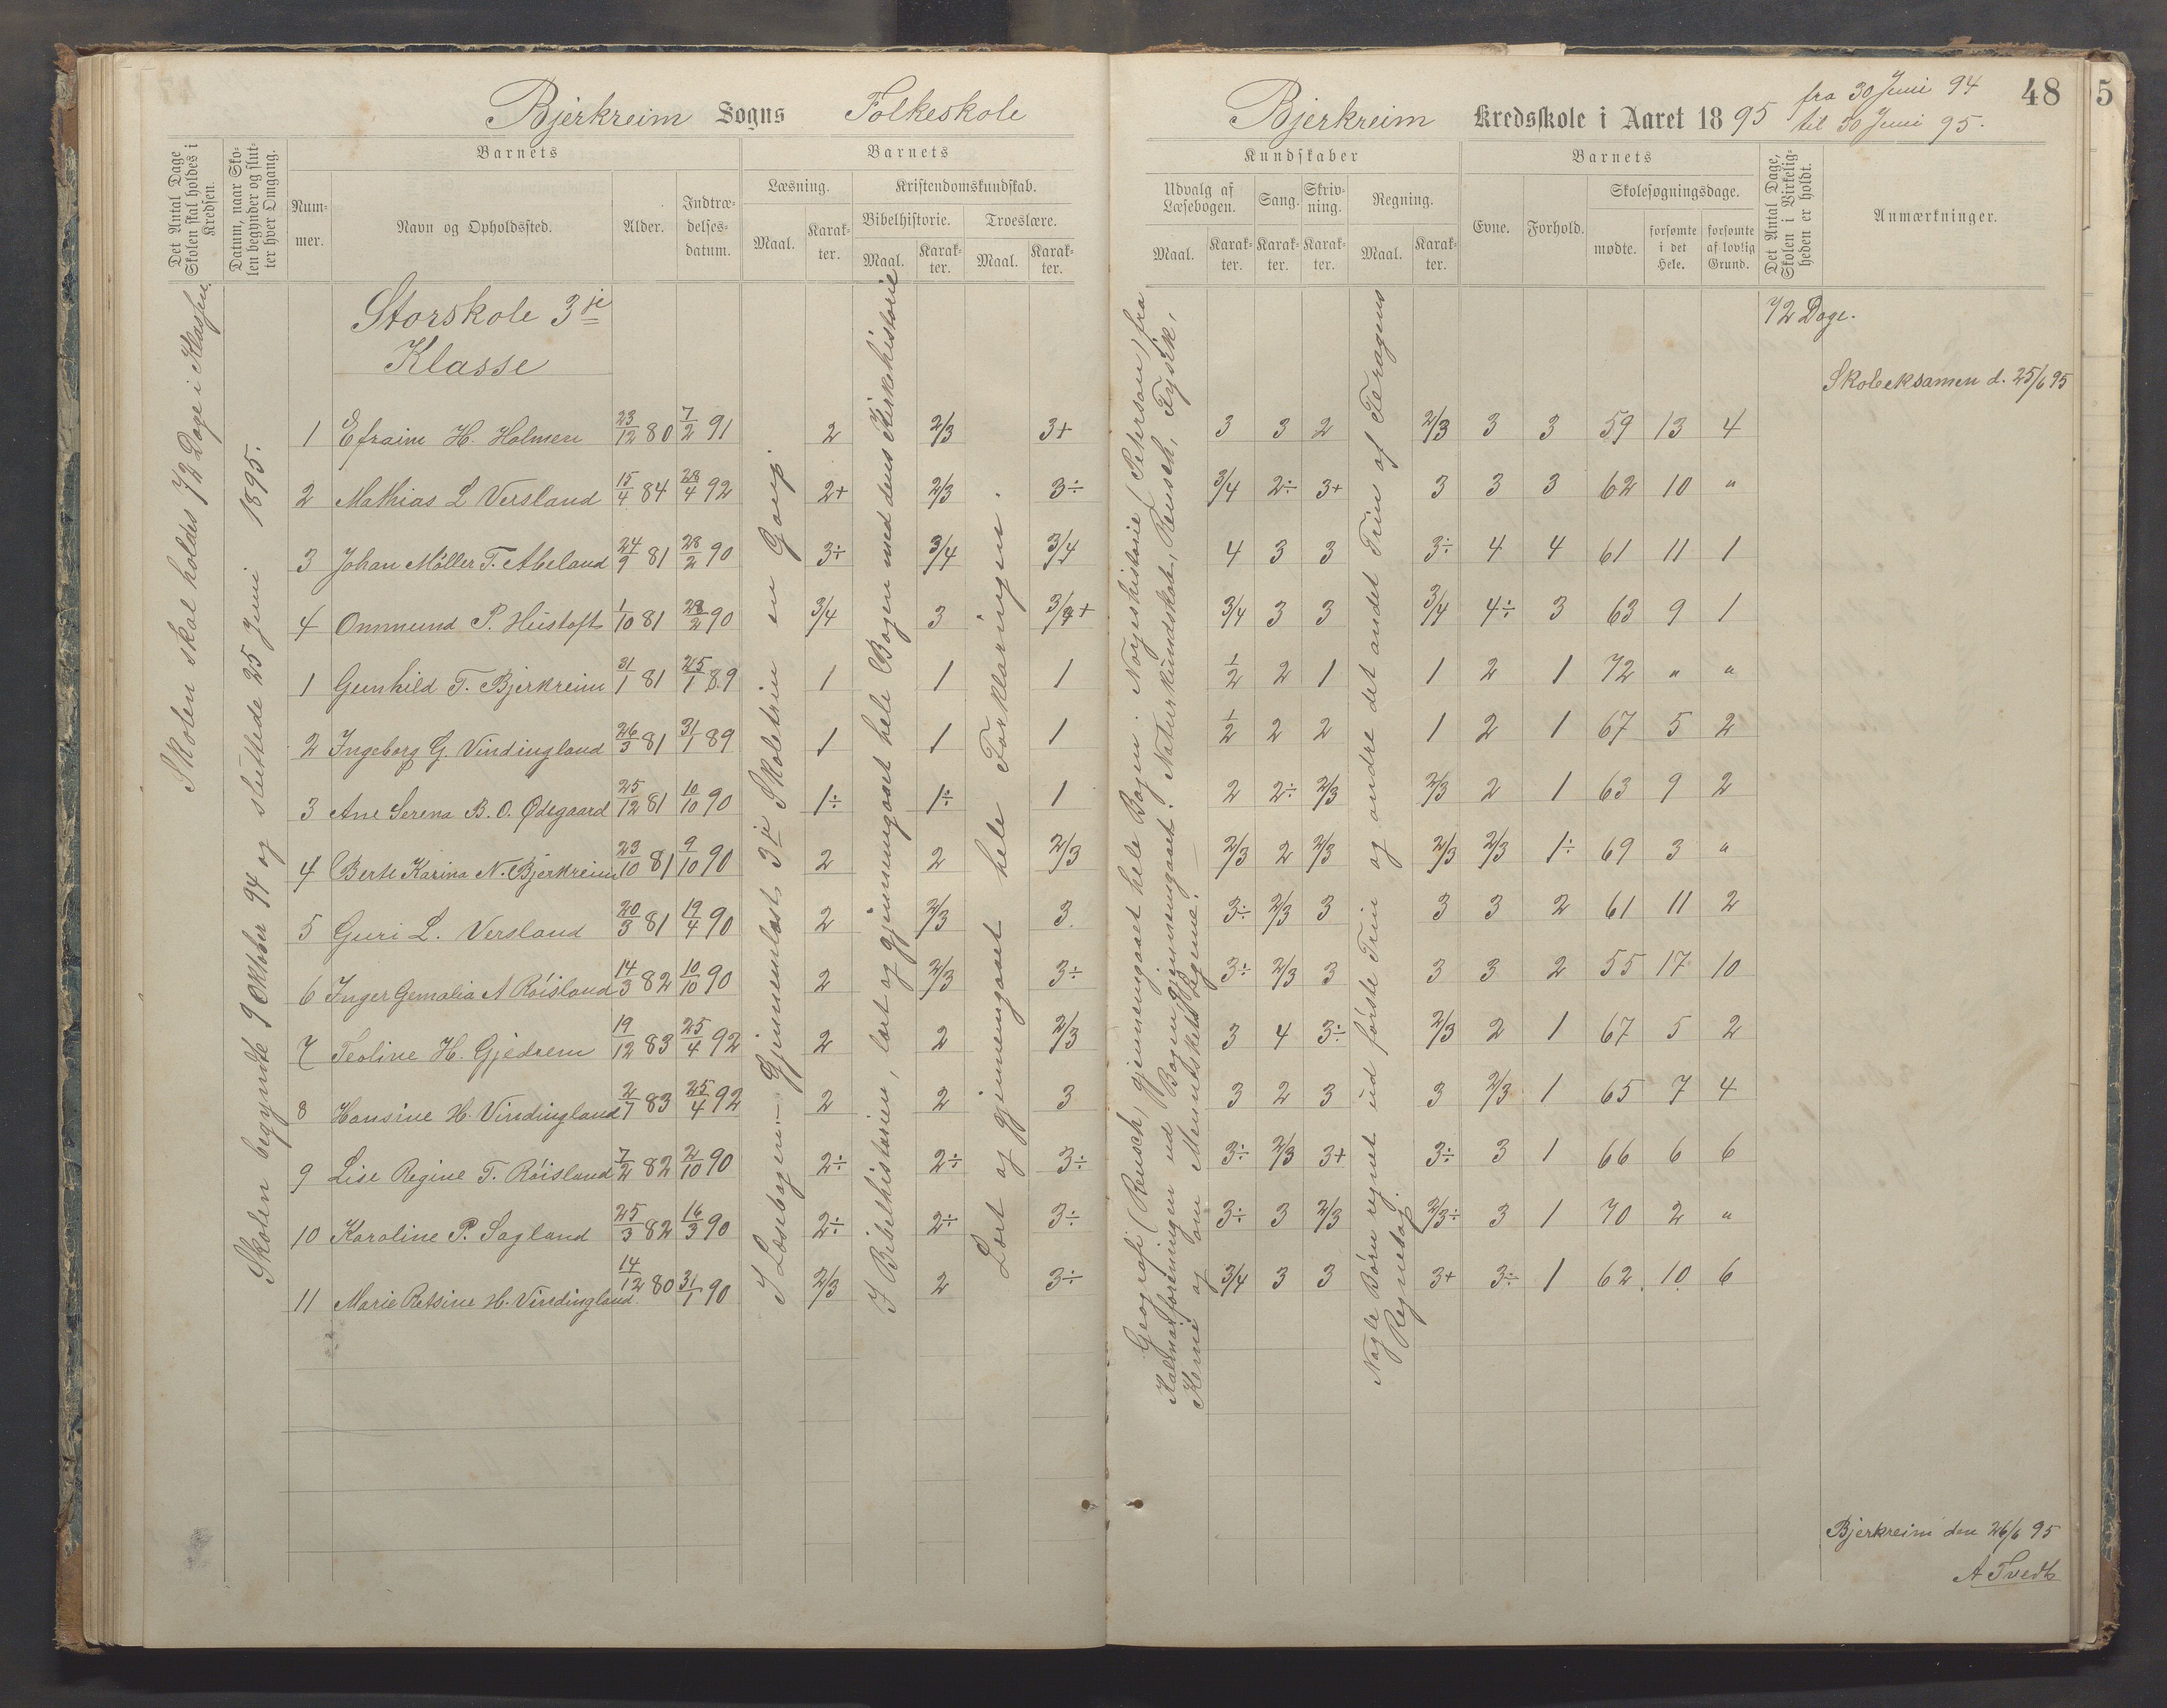 Bjerkreim Sogns Folkeskole
Bjerkreim Kredsskole i Aaret 1895 fra 30 Juni 94
til 30 Juni 95.
48
5
Det Antal Dage
Skolen skal holdes i
Kredsen.
Datum, naar Sko-
len begynder og slut-
ter hver Omgang.
Barnets
Num-
mer.
Navn og Opholdssted.
Alder.
Indtræ-
delses-
datum.
Barnets
Læsning.
Maal.
Karak-
ter.
Kristendomskundskab.
Bibelhistorie.
Maal.
Karak-
ter.
Troeslære.
Maal.
Karak-
ter.
Kundskaber
Udvalg af
Læsebogen.
Maal.
Karak-
ter.
Sang.
Karak-
ter.
Skriv-
ning.
Karak-
ter.
Regning.
Maal.
Karak-
ter.
Barnets
Evne.
Forhold.
Skolesøgningsdage.
mødte.
forsømte
i det
Hele.
forsømte
af lovlig
Grund.
Det Antal Dage,
Skolen i Virkelig-
heden er holdt.
Anmærkninger.
Skolen skal holdes 72 Dage i Klassen
Skolen begyndte 9 Oktober 94 og sluttede 25 Juni 1895.
Storskole 3je
Klasse
72 Dage.
Skoleeksamen d. 25/6 95
I Læsebogen:- Gjennemlæst 3je Skoletrin en Gang
I Bibelhistorien, lært og gjennemgaaet hele Bogen med dens Kirkehistorie
Lært og gjennemgaaet hele Forklaringen.
Geografi (Reusch) gjennemgaaet hele Bogen. Norgeshistorie (Peterson) fra
Kalmarforeningen ud Bogen gjennemgaaet. Naturkundskab, Reusch, Fysik,
Kemi og om Menneskets Legeme.
Nogle Børn regnet ud første Trin og andre det andet Trin af Feragens
Regnebog.
1 Efraim H. Holmen 23/12 80 7/2 91 2 2/3 3+ 3 3 2 2/3 3 3 59 13 4
2 Mathias L Versland 15/4 84 28/4 92 2+ 2/3 3÷ 3/4 2÷ 3+ 3 3 3 62 10 "
3 Johan Møller T. Abeland 24/9 81 28/2 90 3÷ 3/4 3/4 4 3 3 3÷ 4 4 61 11 1
4 Ommund P. Hustoft 1/10 81 28/2 90 3/4 3 3/4+ 3/4 3 3 3/4 4÷ 3 63 9 1
1 Gunhild T. Bjerkreim 31/1 81 25/1 89 1 1 1 1/2 2 1 1 2 1 72 " "
2 Ingeborg G. Vindingland 26/3 81 31/1 89 1 1 1 1/2 2 2 1 2 1 67 5 2
3 Ane Serena B. O. Ødegaard 25/12 81 10/10 90 1÷ 1÷ 1 2 2÷ 2/3 2/3 2 1 63 9 2
4 Berte Karina N. Bjerkreim 23/10 81 9/10 90 2 2 2/3 2/3 2 2/3 2/3 2/3 1÷ 69 3 "
5 Guri L. Versland 20/3 81 19/4 90 2 2/3 3 3÷ 2/3 3 3 3 2 61 11 2
6 Inger Gemalia A Røisland 14/3 82 10/10 90 2 2/3 3÷ 3÷ 2/3 3 3 3 2 55 17 10
7 Teoline H. Gjedrem 19/12 83 25/4 92 2 2 2/3 3 4 3÷ 2/3 2 1 67 5 2
8 Hansine H. Vindingland 2/7 83 25/4 92 2 2 3 3 2 3 3 2/3 1 65 7 4
9 Lise Regine T. Røisland 7/2 82 2/10 90 2÷ 2÷ 3÷ 3÷ 2/3 3+ 3÷ 3 1 66 6 6
10 Karoline P. Sagland 25/3 82 16/3 90 2÷ 2÷ 3÷ 3÷ 3 2/3 2/3÷ 3 1 70 2 "
11 Marie Retsine H. Vindingland 14/12 80 31/1 90 2/3 2 3÷ 3/4 3 3 3+ 3÷ 1 62 10 6
Bjerkreim den 26/6 95
A Tvedt